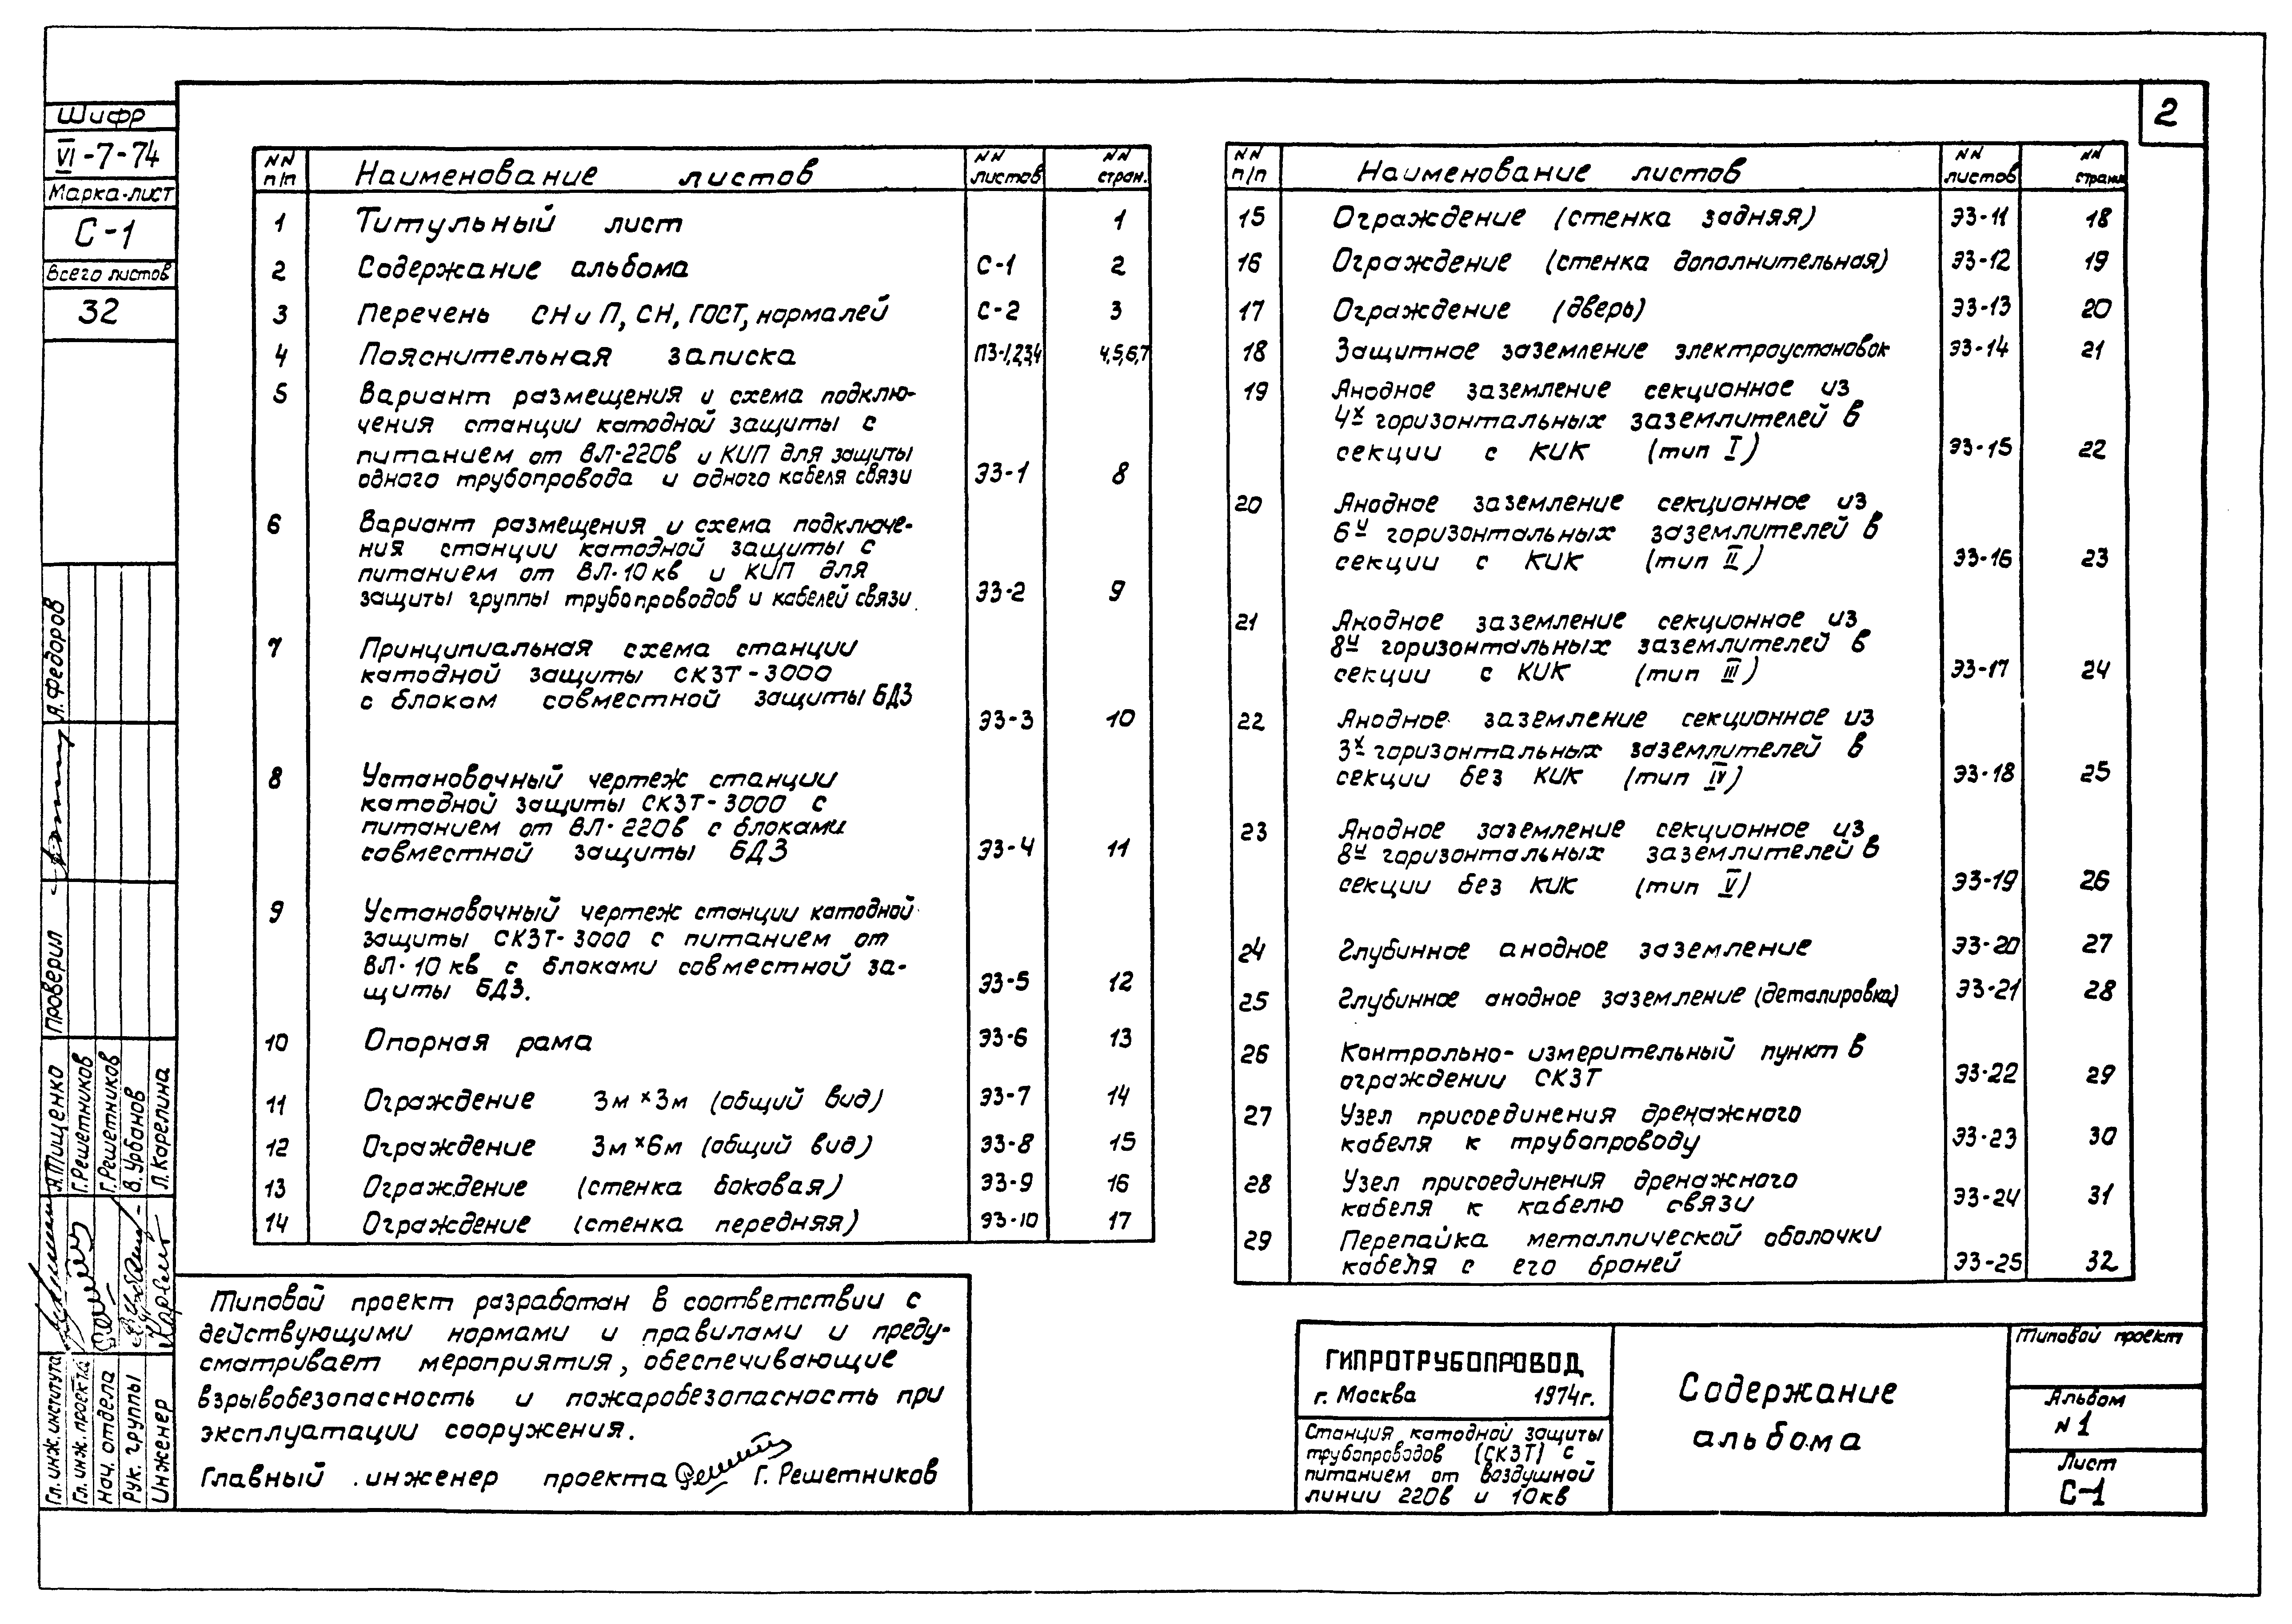 2
Шифр
VI-7-74
Марка-лист
С-1
Всего листов
32
NN п/п Наименование листов NN листов NN стран.
1 Титульный лист 1
2 Содержание альбома С-1 2
3 Перечень СНиП, СН, ГОСТ, нормалей С-2 3
4 Пояснительная записка ПЗ-1,2,3,4 4,5,6,7
5 Вариант размещения и схема подклю-
чения станции катодной защиты с
питанием от ВЛ-220в и КИП для защиты
одного трубопровода и одного кабеля связи ЭЗ-1 8
6 Вариант размещения и схема подключе-
ния станции катодной защиты с
питанием от ВЛ-10кв и КИП для
защиты группы трубопроводов и кабелей связи. ЭЗ-2 9
7 Принципиальная схема станции
катодной защиты СКЗТ-3000
с блокам совместной защиты БДЗ
ЭЗ-3 10
8 Установочный чертеж станции
катодной защиты СКЗТ-3000 с
питанием от ВЛ-220в с блоками
совместной защиты БДЗ ЭЗ-4 11
9 Установочный чертеж станции катодной
защиты СКЗТ-3000 с питанием от
ВЛ-10кв с блоками совместной за-
щиты БДЗ. ЭЗ-5 12
10 Опорная рама ЭЗ-6 13
11 Ограждение 3м×3м (общий вид) ЭЗ-7 14
12 Ограждение 3м×6м (общий вид) ЭЗ-8 15
13 Ограждение (стенка боковая) ЭЗ-9 16
14 Ограждение (стенка передняя) ЭЗ-10 17
NN п/п Наименование листов NN листов NN страниц
15 Ограждение (стенка задняя) ЭЗ-11 18
16 Ограждение (стенка дополнительная) ЭЗ-12 19
17 Ограждение (дверь) ЭЗ-13 20
18 Защитное заземление электроустановок ЭЗ-14 21
19 Анодное заземление секционное из
4х горизонтальных заземлителей в
секции с КИК (тип I) ЭЗ-15 22
20 Анодное заземление секционное из
6и горизонтальных заземлителей в
секции с КИК (тип II) ЭЗ-16 23
21 Анодное заземление секционное из
8и горизонтальных заземлителей в
секции с КИК (тип III) ЭЗ-17 24
22 Анодное заземление секционное из
3х горизонтальных заземлителей в
секции без КИК (тип IV) ЭЗ-18 25
23 Анодное заземление секционное из
8и горизонтальных заземлителей в
секции без КИК (тип V) ЭЗ-19 26
24 Глубинное анодное заземление ЭЗ-20 27
25 Глубинное анодное заземление (деталировка) ЭЗ-21 28
26 Контрольно-измерительный пункт в
ограждении СКЗТ ЭЗ-22 29
27 Узел присоединения дренажного
кабеля к трубопроводу ЭЗ-23 30
28 Узел присоединения дренажного
кабеля к кабелю связи ЭЗ-24 31
29 Перепайка металлической оболочки
кабеля с его броней ЭЗ-25 32
Типовой проект разработан в соответствии с
действующими нормами и правилами и преду-
сматривает мероприятия, обеспечивающие
взрывобезопасность и пожаробезопасность при
эксплуатации сооружения.
Главный инженер проекта Г. Решетников
ГИПРОТРУБОПРОВОД
г. Москва 1974г.
Станция катодной защиты
трубопроводов (СКЗТ) с
питанием от воздушной
линии 220в и 10кв
Содержание
альбома
Типовой проект
Альбом
N 1
Лист
С-1
Гл. инж. института А. Тищенко
Гл. инж. проекта Г. Решетников
Нач. отдела Г. Решетников
Рук. группы В. Урбанов
Инженер Л. Корелина
Проверил А. Федоров